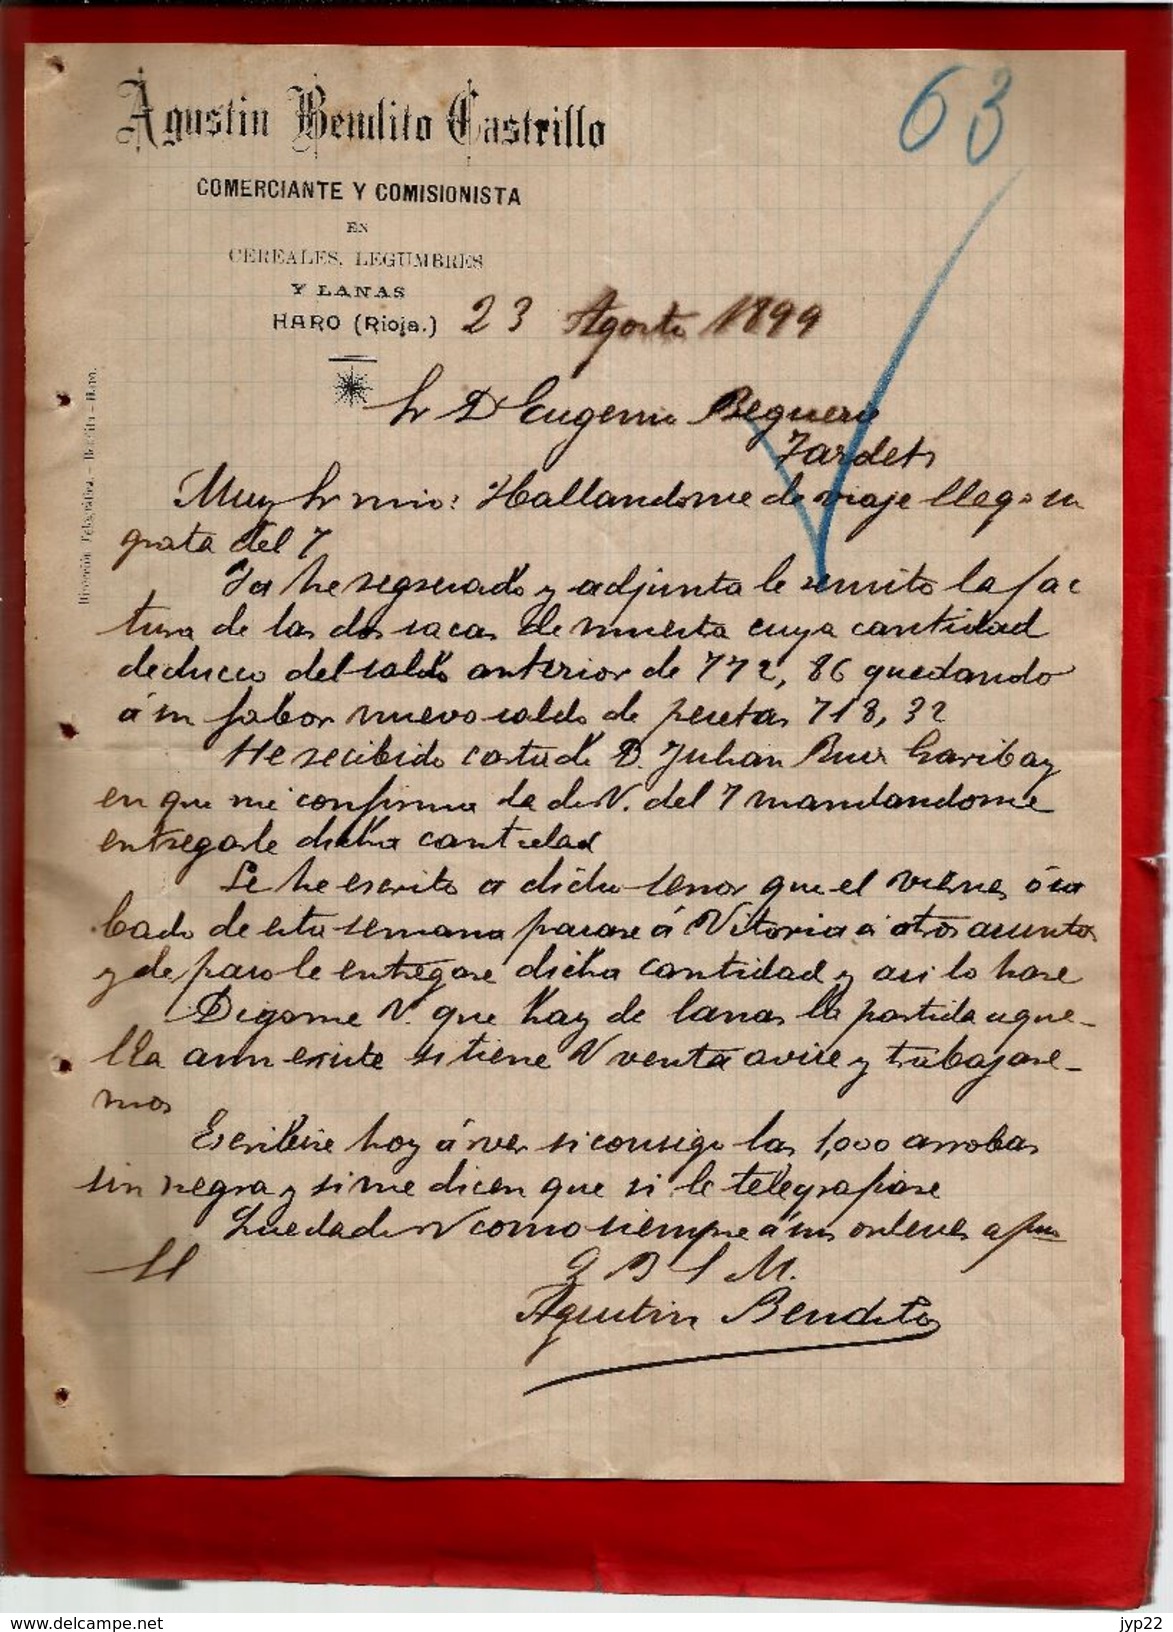 63
Agustin Bendito Castrillo
COMERCIANTE Y COMISIONISTA
EN
CEREALES, LEGUMBRES
Y LANAS
HARO (Rioja.) 23 Agosto 1899
Dirección Telegráfica. - Bendito - Haro.
Sr D Eugenio Beguerie
Tardets
Muy Sr mio: Hallandome de viaje llego su
grata del 7
Ya he regresado y adjunta le remito la fac
tura de las dos sacas de muestra cuya cantidad
deduceo del saldo anterior de 772, 86 quedando
á su fabor nuevo saldo de pesetas 718, 32
He recibido carta de D. Julian Ruiz Garibay
en que me confirma la de V. del 7 mandandome
entregarle dicha cantidad
Le he escrito a dicho señor que el viernes ó sa
bado de esta semana pasare á Vitoria a otros asuntos
y de paso le entregare dicha cantidad y asi lo hare
Digame V. que hay de lanas la partida aque-
lla aun existe si tiene V venta avise y trabajare-
mos
Escribire hoy á ver si consigo las 1,000 arrobas
sin negra y si me dicen que si le telegrafiare
Quedad de V como siempre á sus ordenes afmo
SS
Q B S M.
Agustin Bendito
www.delcampe.net
jyp22